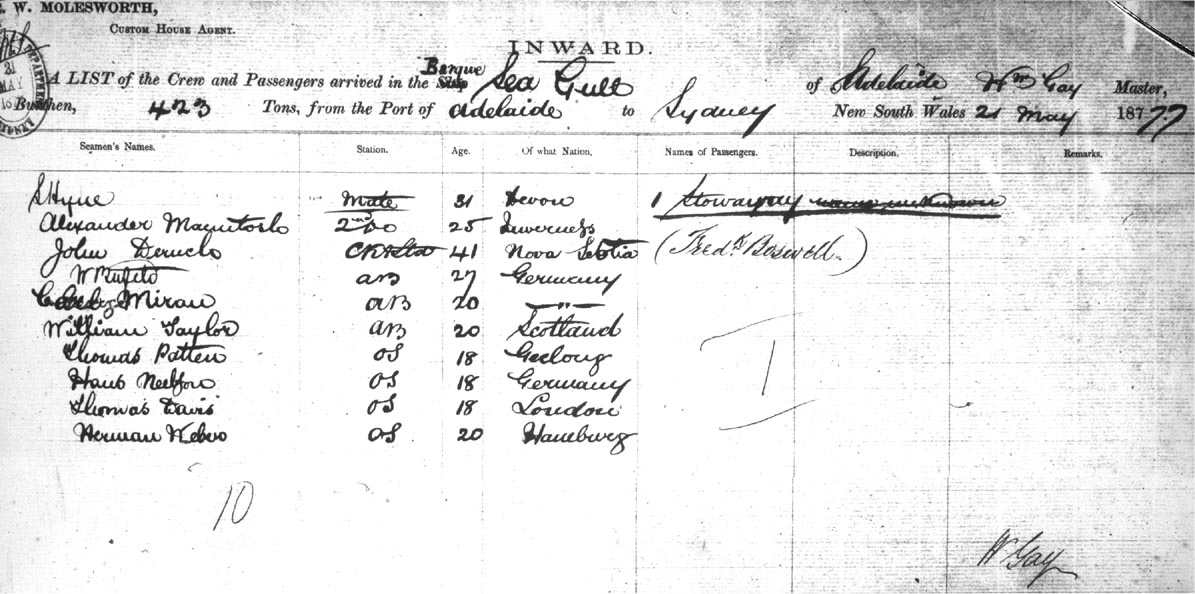 W. MOLESWORTH,
CUSTOM HOUSE AGENT.
INWARD.
A LIST of the Crew and Passengers arrived in the Ship Barque Sea Gull of Adelaide Wm Gay Master,
Burthen, 423 Tons, from the Port of Adelaide to Sydney New South Wales 21 May 1877
Seamen's Names. Station. Age. Of what Nation, Names of Passengers. Description. Remarks.
S Hyne Mate 31 Devon 1 Stowaway name unknown
Alexander Macintosh 2nd do 25 Inverness
John 41 Nova Scotia (Fredk Boswell)
W AB 27 Germany
AB 20 —"—
William Taylor AB 20 Scotland
Thomas Patten OS 18 Geelong
Hans OS 18 Germany
Thomas Davis OS 18 London
Herman OS 20 Hamburg
1
10
W Gay
21
MAY